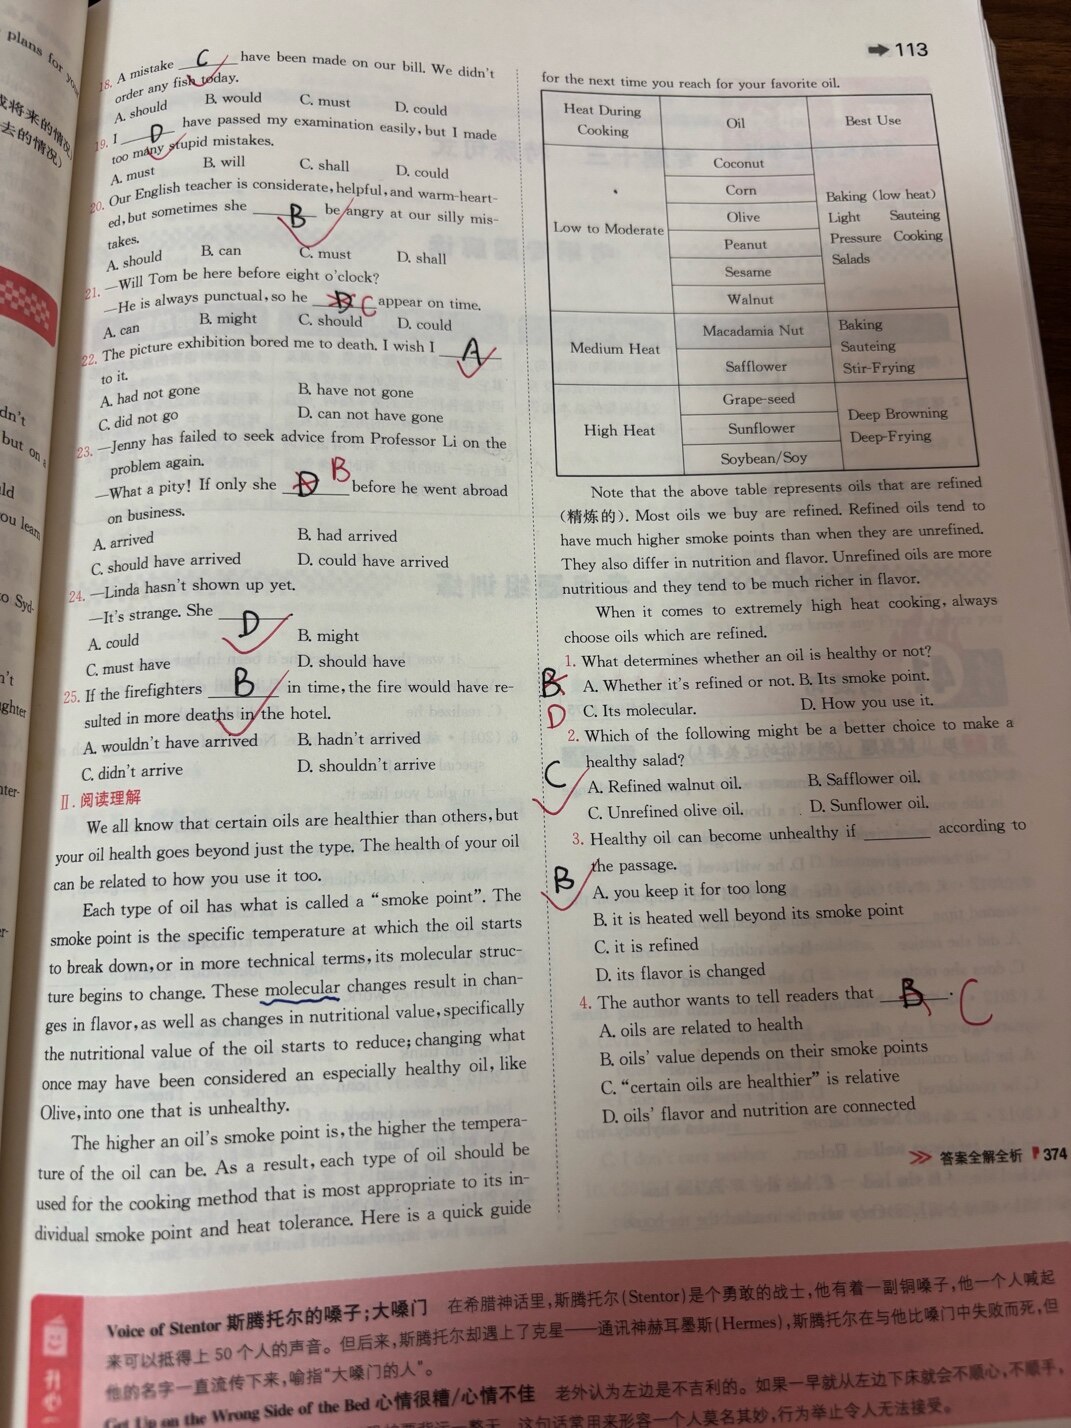 ➡ 113
plans for you
或将来的情况
去的情况)
18. A mistake C have been made on our bill. We didn't
order any fish today.
A. should B. would C. must D. could
19. I D have passed my examination easily, but I made
too many stupid mistakes.
A. must B. will C. shall D. could
20. Our English teacher is considerate, helpful, and warm-heart-
ed, but sometimes she B be angry at our silly mis-
takes.
A. should B. can C. must D. shall
21. —Will Tom be here before eight o'clock?
—He is always punctual, so he D C appear on time.
A. can B. might C. should D. could
22. The picture exhibition bored me to death. I wish I A
to it.
A. had not gone B. have not gone
C. did not go D. can not have gone
23. —Jenny has failed to seek advice from Professor Li on the
problem again.
—What a pity! If only she D B before he went abroad
on business.
A. arrived B. had arrived
C. should have arrived D. could have arrived
24. —Linda hasn't shown up yet.
—It's strange. She D .
A. could B. might
C. must have D. should have
25. If the firefighters B in time, the fire would have re-
sulted in more deaths in the hotel.
A. wouldn't have arrived B. hadn't arrived
C. didn't arrive D. shouldn't arrive
Ⅱ. 阅读理解
We all know that certain oils are healthier than others, but
your oil health goes beyond just the type. The health of your oil
can be related to how you use it too.
Each type of oil has what is called a “smoke point”. The
smoke point is the specific temperature at which the oil starts
to break down, or in more technical terms, its molecular struc-
ture begins to change. These molecular changes result in chan-
ges in flavor, as well as changes in nutritional value, specifically
the nutritional value of the oil starts to reduce; changing what
once may have been considered an especially healthy oil, like
Olive, into one that is unhealthy.
The higher an oil's smoke point is, the higher the tempera-
ture of the oil can be. As a result, each type of oil should be
used for the cooking method that is most appropriate to its in-
dividual smoke point and heat tolerance. Here is a quick guide
for the next time you reach for your favorite oil.
Heat During Cooking Oil Best Use
Low to Moderate
Coconut
Corn
Olive
Peanut
Sesame
Walnut
Baking (low heat)
Light Sauteing
Pressure Cooking
Salads
Medium Heat
Macadamia Nut
Safflower
Baking
Sauteing
Stir-Frying
High Heat
Grape-seed
Sunflower
Soybean/Soy
Deep Browning
Deep-Frying
Note that the above table represents oils that are refined
(精炼的). Most oils we buy are refined. Refined oils tend to
have much higher smoke points than when they are unrefined.
They also differ in nutrition and flavor. Unrefined oils are more
nutritious and they tend to be much richer in flavor.
When it comes to extremely high heat cooking, always
choose oils which are refined.
1. What determines whether an oil is healthy or not?
B A. Whether it's refined or not. B. Its smoke point.
D C. Its molecular. D. How you use it.
2. Which of the following might be a better choice to make a
healthy salad?
C A. Refined walnut oil. B. Safflower oil.
C. Unrefined olive oil. D. Sunflower oil.
3. Healthy oil can become unhealthy if ______ according to
B the passage.
A. you keep it for too long
B. it is heated well beyond its smoke point
C. it is refined
D. its flavor is changed
4. The author wants to tell readers that B . C
A. oils are related to health
B. oils' value depends on their smoke points
C. “certain oils are healthier” is relative
D. oils' flavor and nutrition are connected
答案全解全析 374
Voice of Stentor 斯腾托尔的嗓子;大嗓门 在希腊神话里,斯腾托尔(Stentor)是个勇敢的战士,他有着一副铜嗓子,他一个人喊起
来可以抵得上 50 个人的声音。但后来,斯腾托尔却遇上了克星——通讯神赫耳墨斯(Hermes),斯腾托尔在与他比嗓门中失败而死,但
他的名字一直流传下来,喻指“大嗓门的人”。
Get Up on the Wrong Side of the Bed 心情很糟/心情不佳 老外认为左边是不吉利的。如果一早就从左边下床就会不顺心,不顺手,
这句话常用来形容一个人莫名其妙,行为举止令人无法接受。